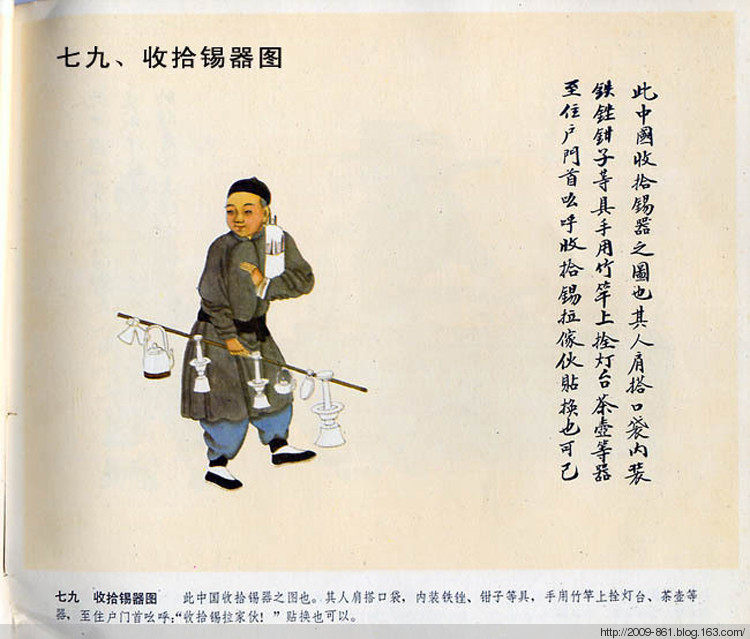 七九、收拾锡器图
此中國收拾锡器之圖也其人肩搭口袋内装
铁銼鉗子等具手用竹竿上拴灯台茶壺等器
至住户門首吆呼收拾锡拉傢伙貼換也可已
七九 收拾锡器图 此中国收拾锡器之图也。其人肩搭口袋，内装铁锉、钳子等具，手用竹竿上拴灯台、茶壶等
器，至住户门首吆呼：“收拾锡拉家伙！”贴换也可以。
http://2009-861.blog.163.com/